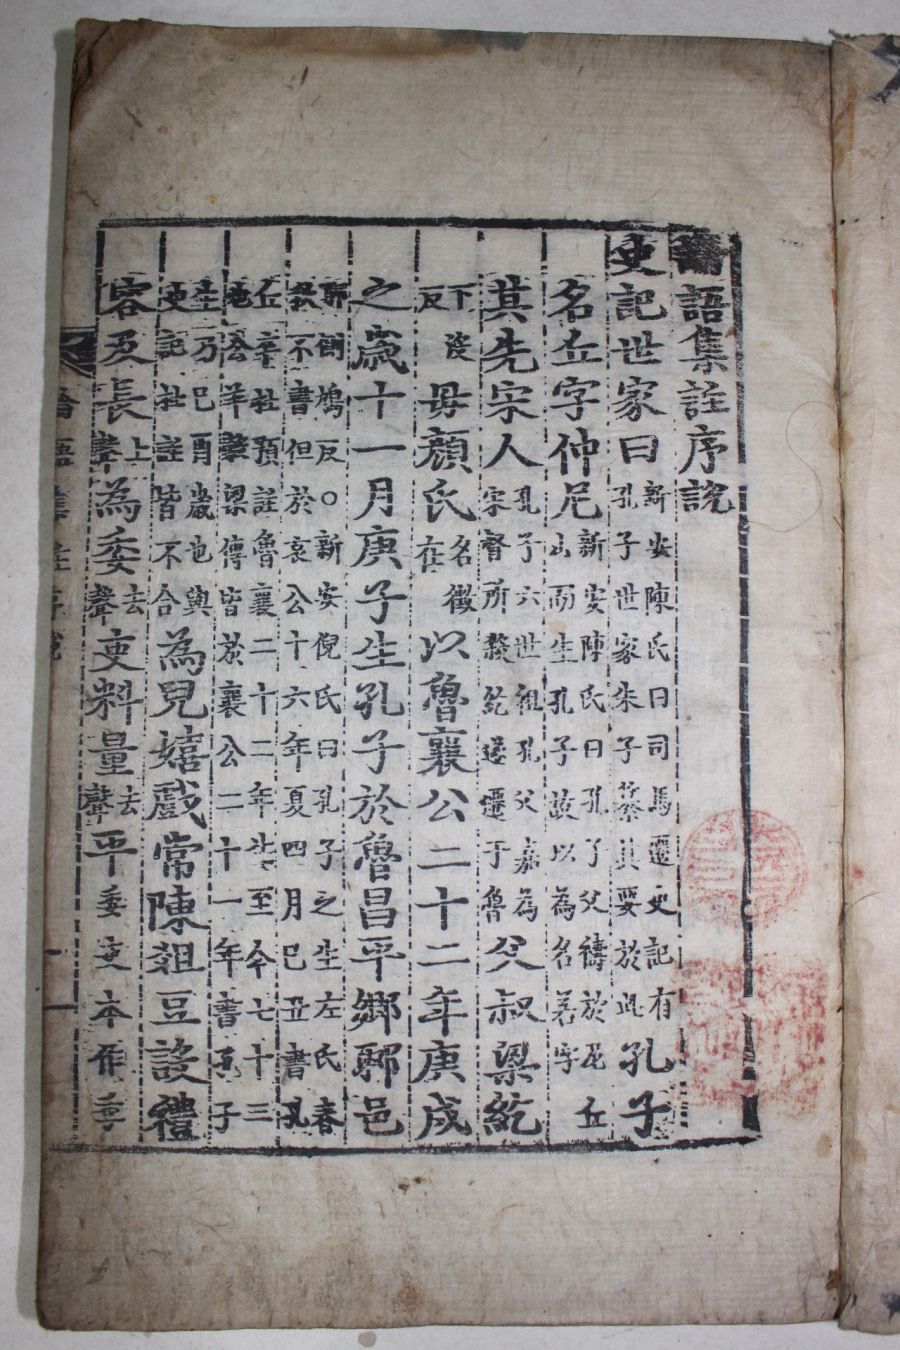 論語集註序說
史記世家曰新安陳氏曰司馬遷史記有孔子世家朱子纂其要於此孔子
名丘字仲尼新安陳氏曰孔子父禱於尼丘山而生孔子故以為名若字
其先宋人孔子六世祖孔父嘉為宋督所殺紇遂遷于魯父叔梁紇
下沒反母顏氏名徵在以魯襄公二十二年庚戌
之歲十一月庚子生孔子於魯昌平鄉郰邑
郰側鳩反○新安倪氏曰孔子之生左氏春秋不書但於哀公十六年夏四月己丑書孔
丘卒杜預註魯襄二十二年生至今七十三也公羊穀梁傳皆於襄公二十一年書孔子
生乃己酉歲也與史記杜註皆不合為兒嬉戲常陳俎豆設禮
容及長上聲為委去聲吏料量去聲平委吏本作季
論語集註序說 一